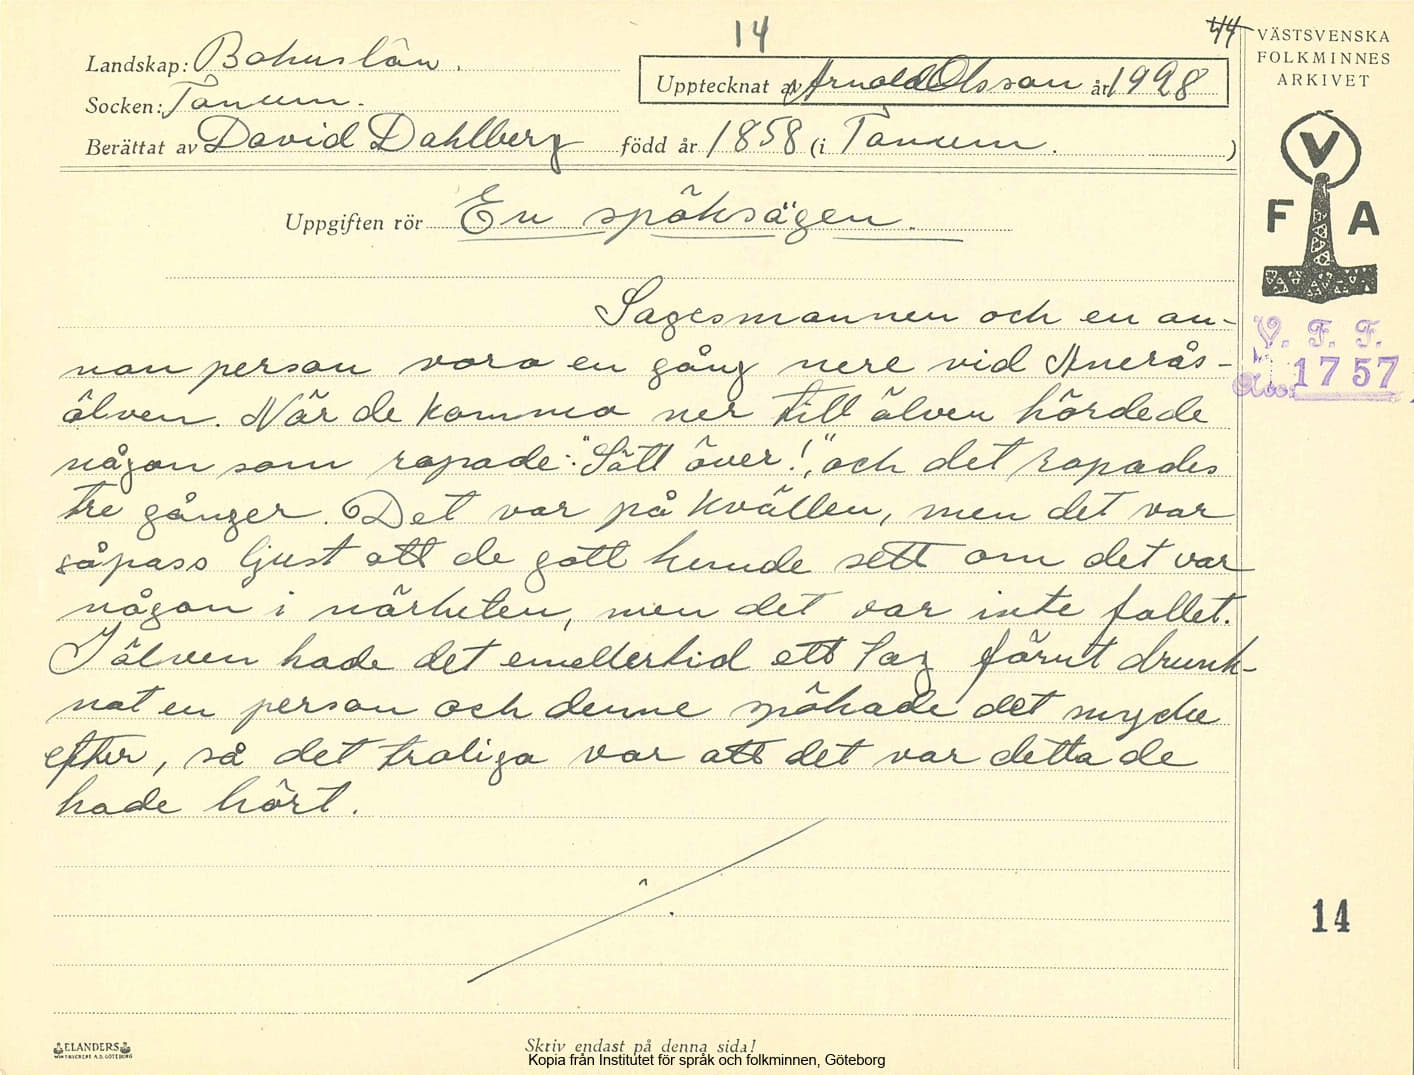 14
44
Landskap: Bohuslän.
Upptecknat av Arnold Olsson år 1928
Socken: Tanum.
Berättat av David Dahlberg född år 1858 (i Tanum. )
Uppgiften rör En spöksägen.
Sagesmannen och en an-
nan person voro en gång nere vid Anerås-
älven. När de kommo ner till älven hörde de
någon som ropade: "Sätt över!", och det ropades
tre gånger. Det var på kvällen, men det var
såpass ljust att de gott kunde sett om det var
någon i närheten, men det var inte fallet.
I älven hade det emellertid ett tag förut drunk-
nat en person och denne spökade det mycke
efter, så det troliga var att det var detta de
hade hört.
VÄSTSVENSKA
FOLKMINNES
ARKIVET
V
F A
V. F. F.
Acc. 1757
14
ELANDERS
BOKTRYCKERI A.B. GÖTEBORG
Skriv endast på denna sida!
Kopia från Institutet för språk och folkminnen, Göteborg